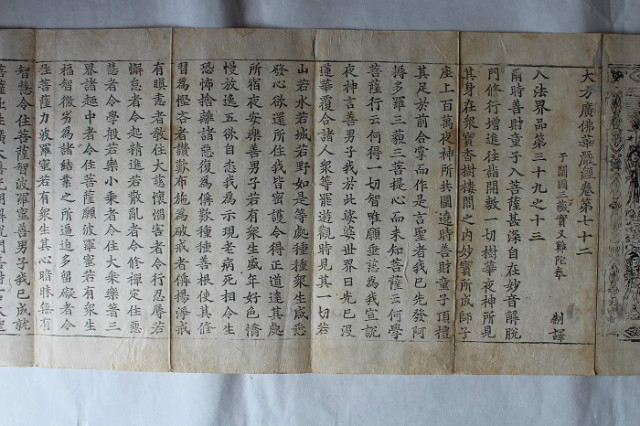 大方廣佛華嚴經卷第七十二
于闐國三藏實叉難陀奉 制譯
入法界品第三十九之十三
爾時善財童子入菩薩甚深自在妙音解脫
門修行增進往詣開敷一切樹華夜神所見
其身在眾寶香樹樓閣之內妙寶所成師子
座上百萬夜神所共圍遶時善財童子頂禮
其足於前合掌而作是言聖者我已先發阿
耨多羅三藐三菩提心而未知菩薩云何學
菩薩行云何得一切智唯願垂慈為我宣說
夜神言善男子我於此娑婆世界日光已沒
蓮華覆合諸人眾等罷遊觀時見其一切若
山若水若城若野如是等處種種眾生咸悉
發心欲還所住我皆密護令得正道達其處
所宿夜安樂善男子若有眾生盛年好色憍
慢放逸五欲自恣我為示現老病死相令生
恐怖捨離諸惡復為稱歎種種善根使其修
習為慳吝者讚歎布施為破戒者稱揚淨戒
有瞋恚者教住大慈懷惱害者令行忍辱若
懈怠者令起精進若散亂者令修禪定住惡
慧者令學般若樂小乘者令住大乘樂著三
界諸趣中者令住菩薩願波羅蜜若有眾生
福智微劣為諸結業之所逼迫多留礙者令
住菩薩力波羅蜜若有眾生其心暗昧無有
智慧令住菩薩智波羅蜜善男子我已成就
菩薩出生廣大喜光明解脫門善財言大聖